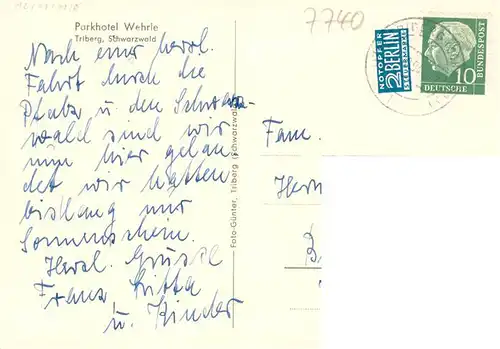 7740
Parkhotel Wehrle
Triberg, Schwarzwald
Nach einer herrl.
Fahrt durch die
Pfalz u. den Schwarz-
wald sind wir
nun hier gelan
det wir hatten
bislang nur
Sonnenschein.
Herzl. Grüsse
Franz, Litta
u. Kinder
Foto-Günter, Triberg (Schwarzwald)
NOTOPFER
2 BERLIN
STEUERMARKE
10
DEUTSCHE BUNDESPOST
Fam.
Herm
B